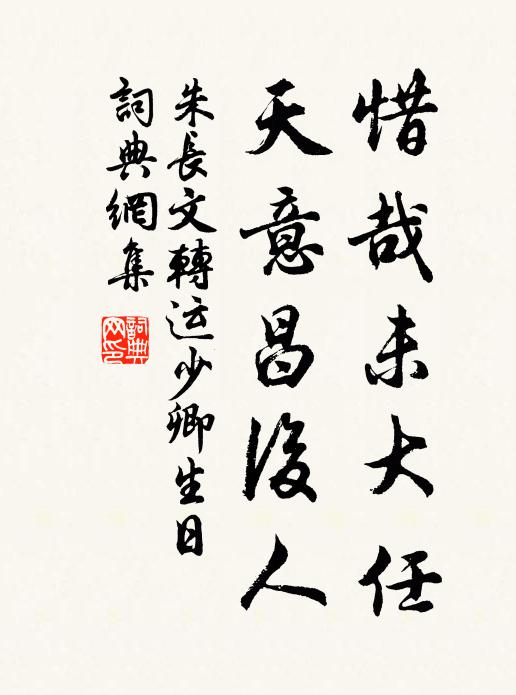 惜哉未大任
天意昌後人
朱長文轉运少卿生日
詞典網集
詞典网印